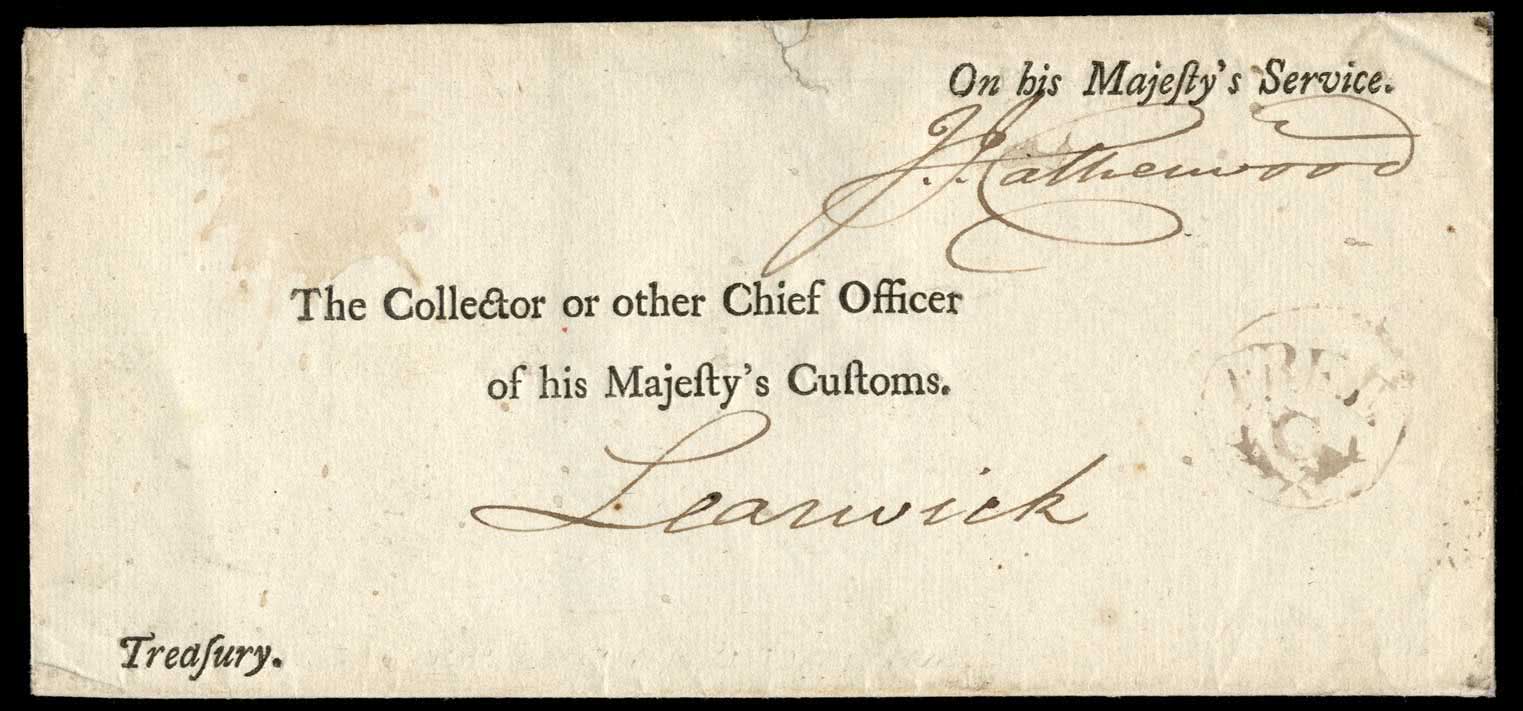 On his Majeſty's Service.
J. J. Catherwood
The Collector or other Chief Officer
of his Majeſty's Cuſtoms.
Learwick
FREE
C
Treaſury.